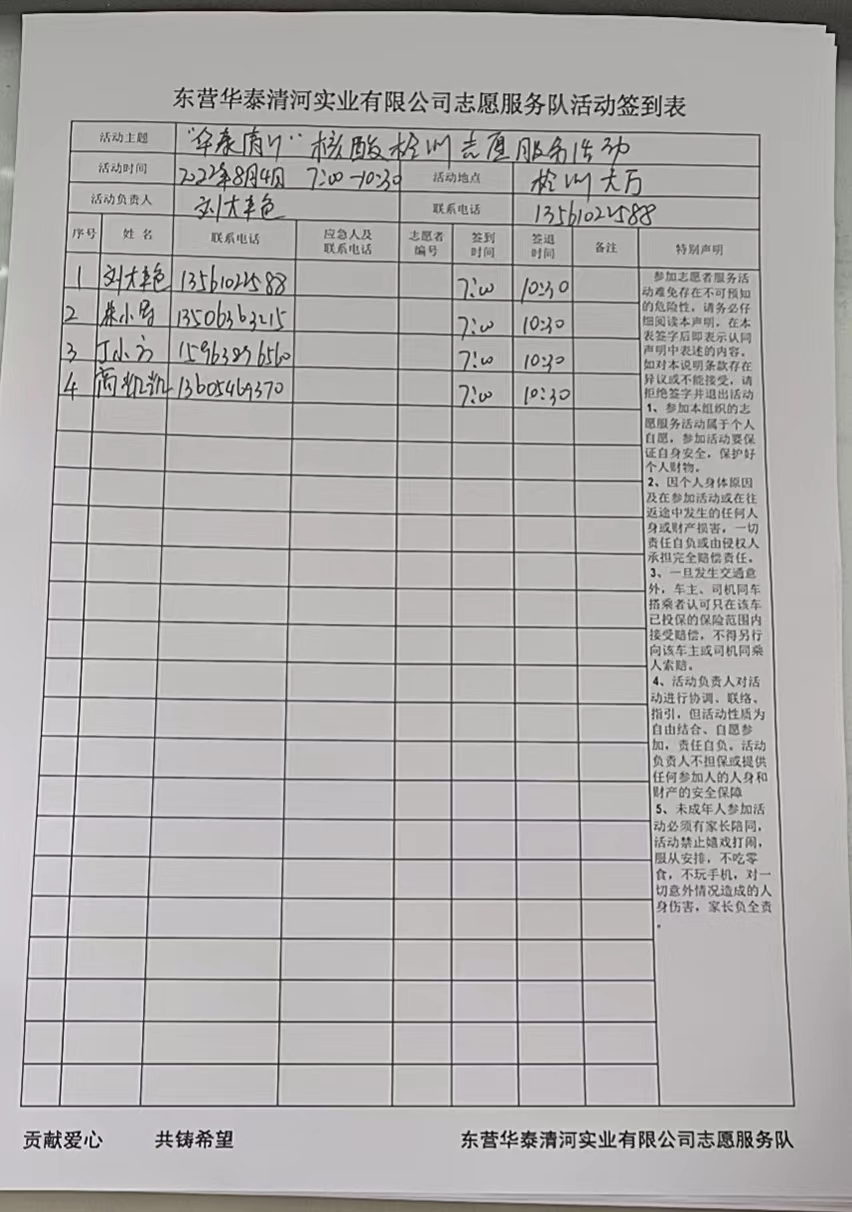 东营华泰清河实业有限公司志愿服务队活动签到表
活动主题 核酸检测志愿服务活动
活动时间 2022年8月4日 7:00-10:30 活动地点 检测大厅
活动负责人 联系电话 13561022588
序号 姓名 联系电话 应急人及联系电话 志愿者编号 签到时间 签退时间 备注 特别声明
1 13561022588 7:00 10:30
2 13506363215 7:00 10:30
3 丁小方 15963896560 7:00 10:30
4 商凯凯 13605469370 7:00 10:30
参加志愿者服务活
动难免存在不可预知
的危险性，请务必仔
细阅读本声明，在本
表签字后即表示认同
声明中表述的内容。
如对本说明条款存在
异议或不能接受，请
拒绝签字并退出活动
1、参加本组织的志
愿服务活动属于个人
自愿，参加活动要保
证自身安全，保护好
个人财物。
2、因个人身体原因
及在参加活动或在往
返途中发生的任何人
身或财产损害，一切
责任自负或由侵权人
承担完全赔偿责任。
3、一旦发生交通意
外，车主、司机同车
搭乘者认可只在该车
已投保的保险范围内
接受赔偿，不得另行
向该车主或司机同乘
人索赔。
4、活动负责人对活
动进行协调、联络、
指引，但活动性质为
自由结合、自愿参
加，责任自负。活动
负责人不担保或提供
任何参加人的人身和
财产的安全保障
5、未成年人参加活
动必须有家长陪同，
活动禁止嬉戏打闹，
服从安排，不吃零
食，不玩手机，对一
切意外情况造成的人
身伤害，家长负全责
。
贡献爱心 共铸希望 东营华泰清河实业有限公司志愿服务队